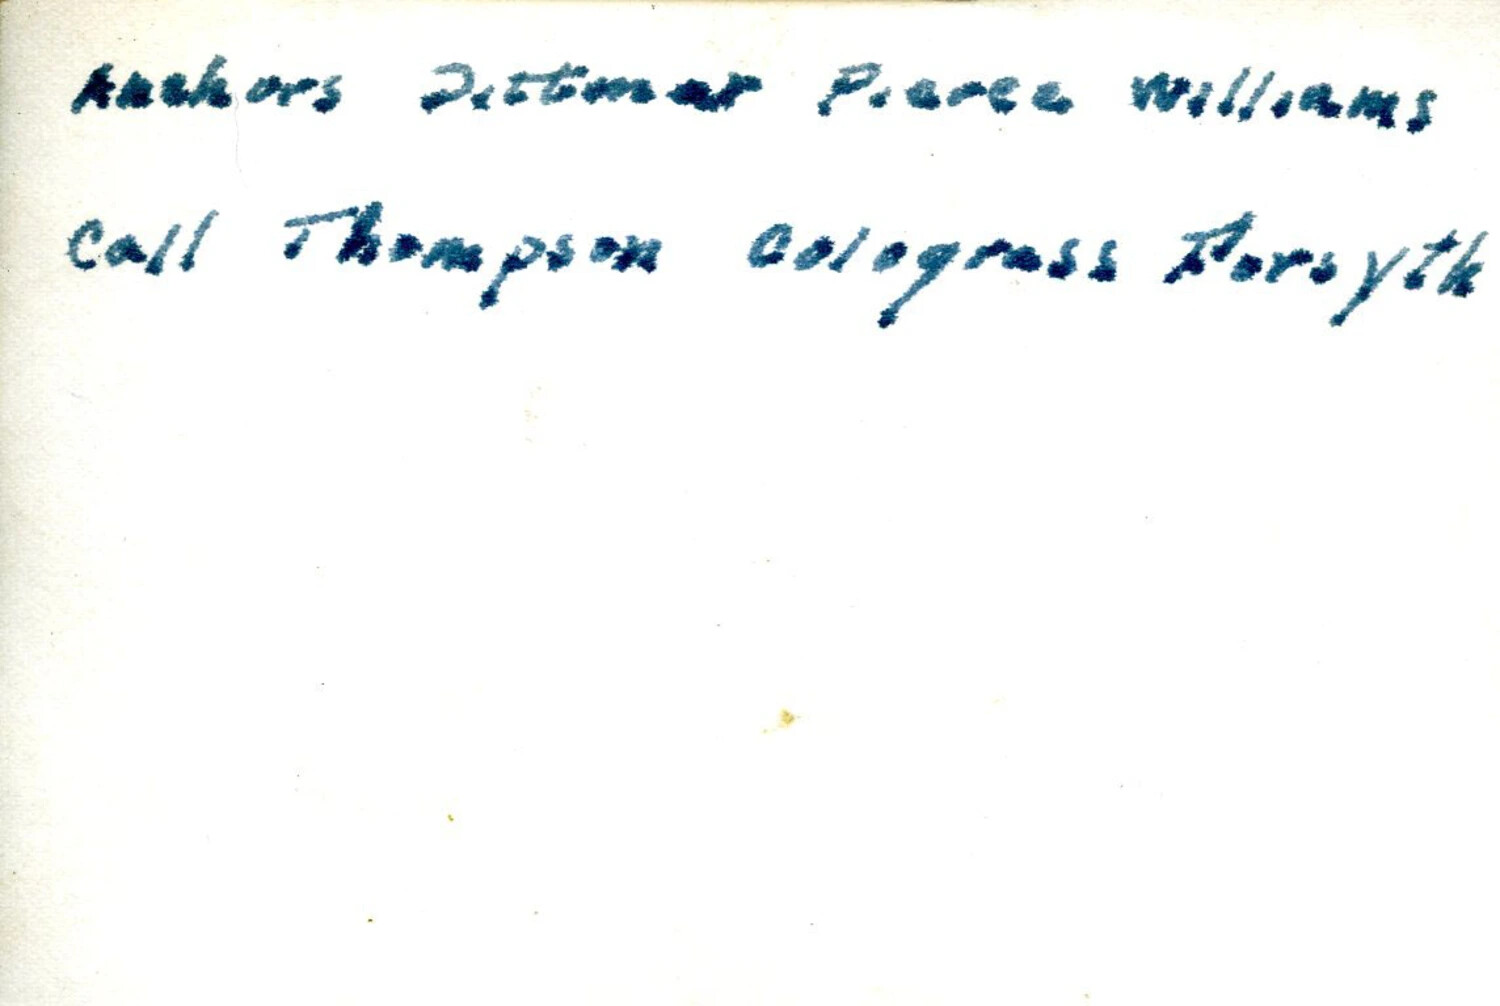 Anchors Dittmar Pierce Williams
Call Thompson Colograss Forsyth